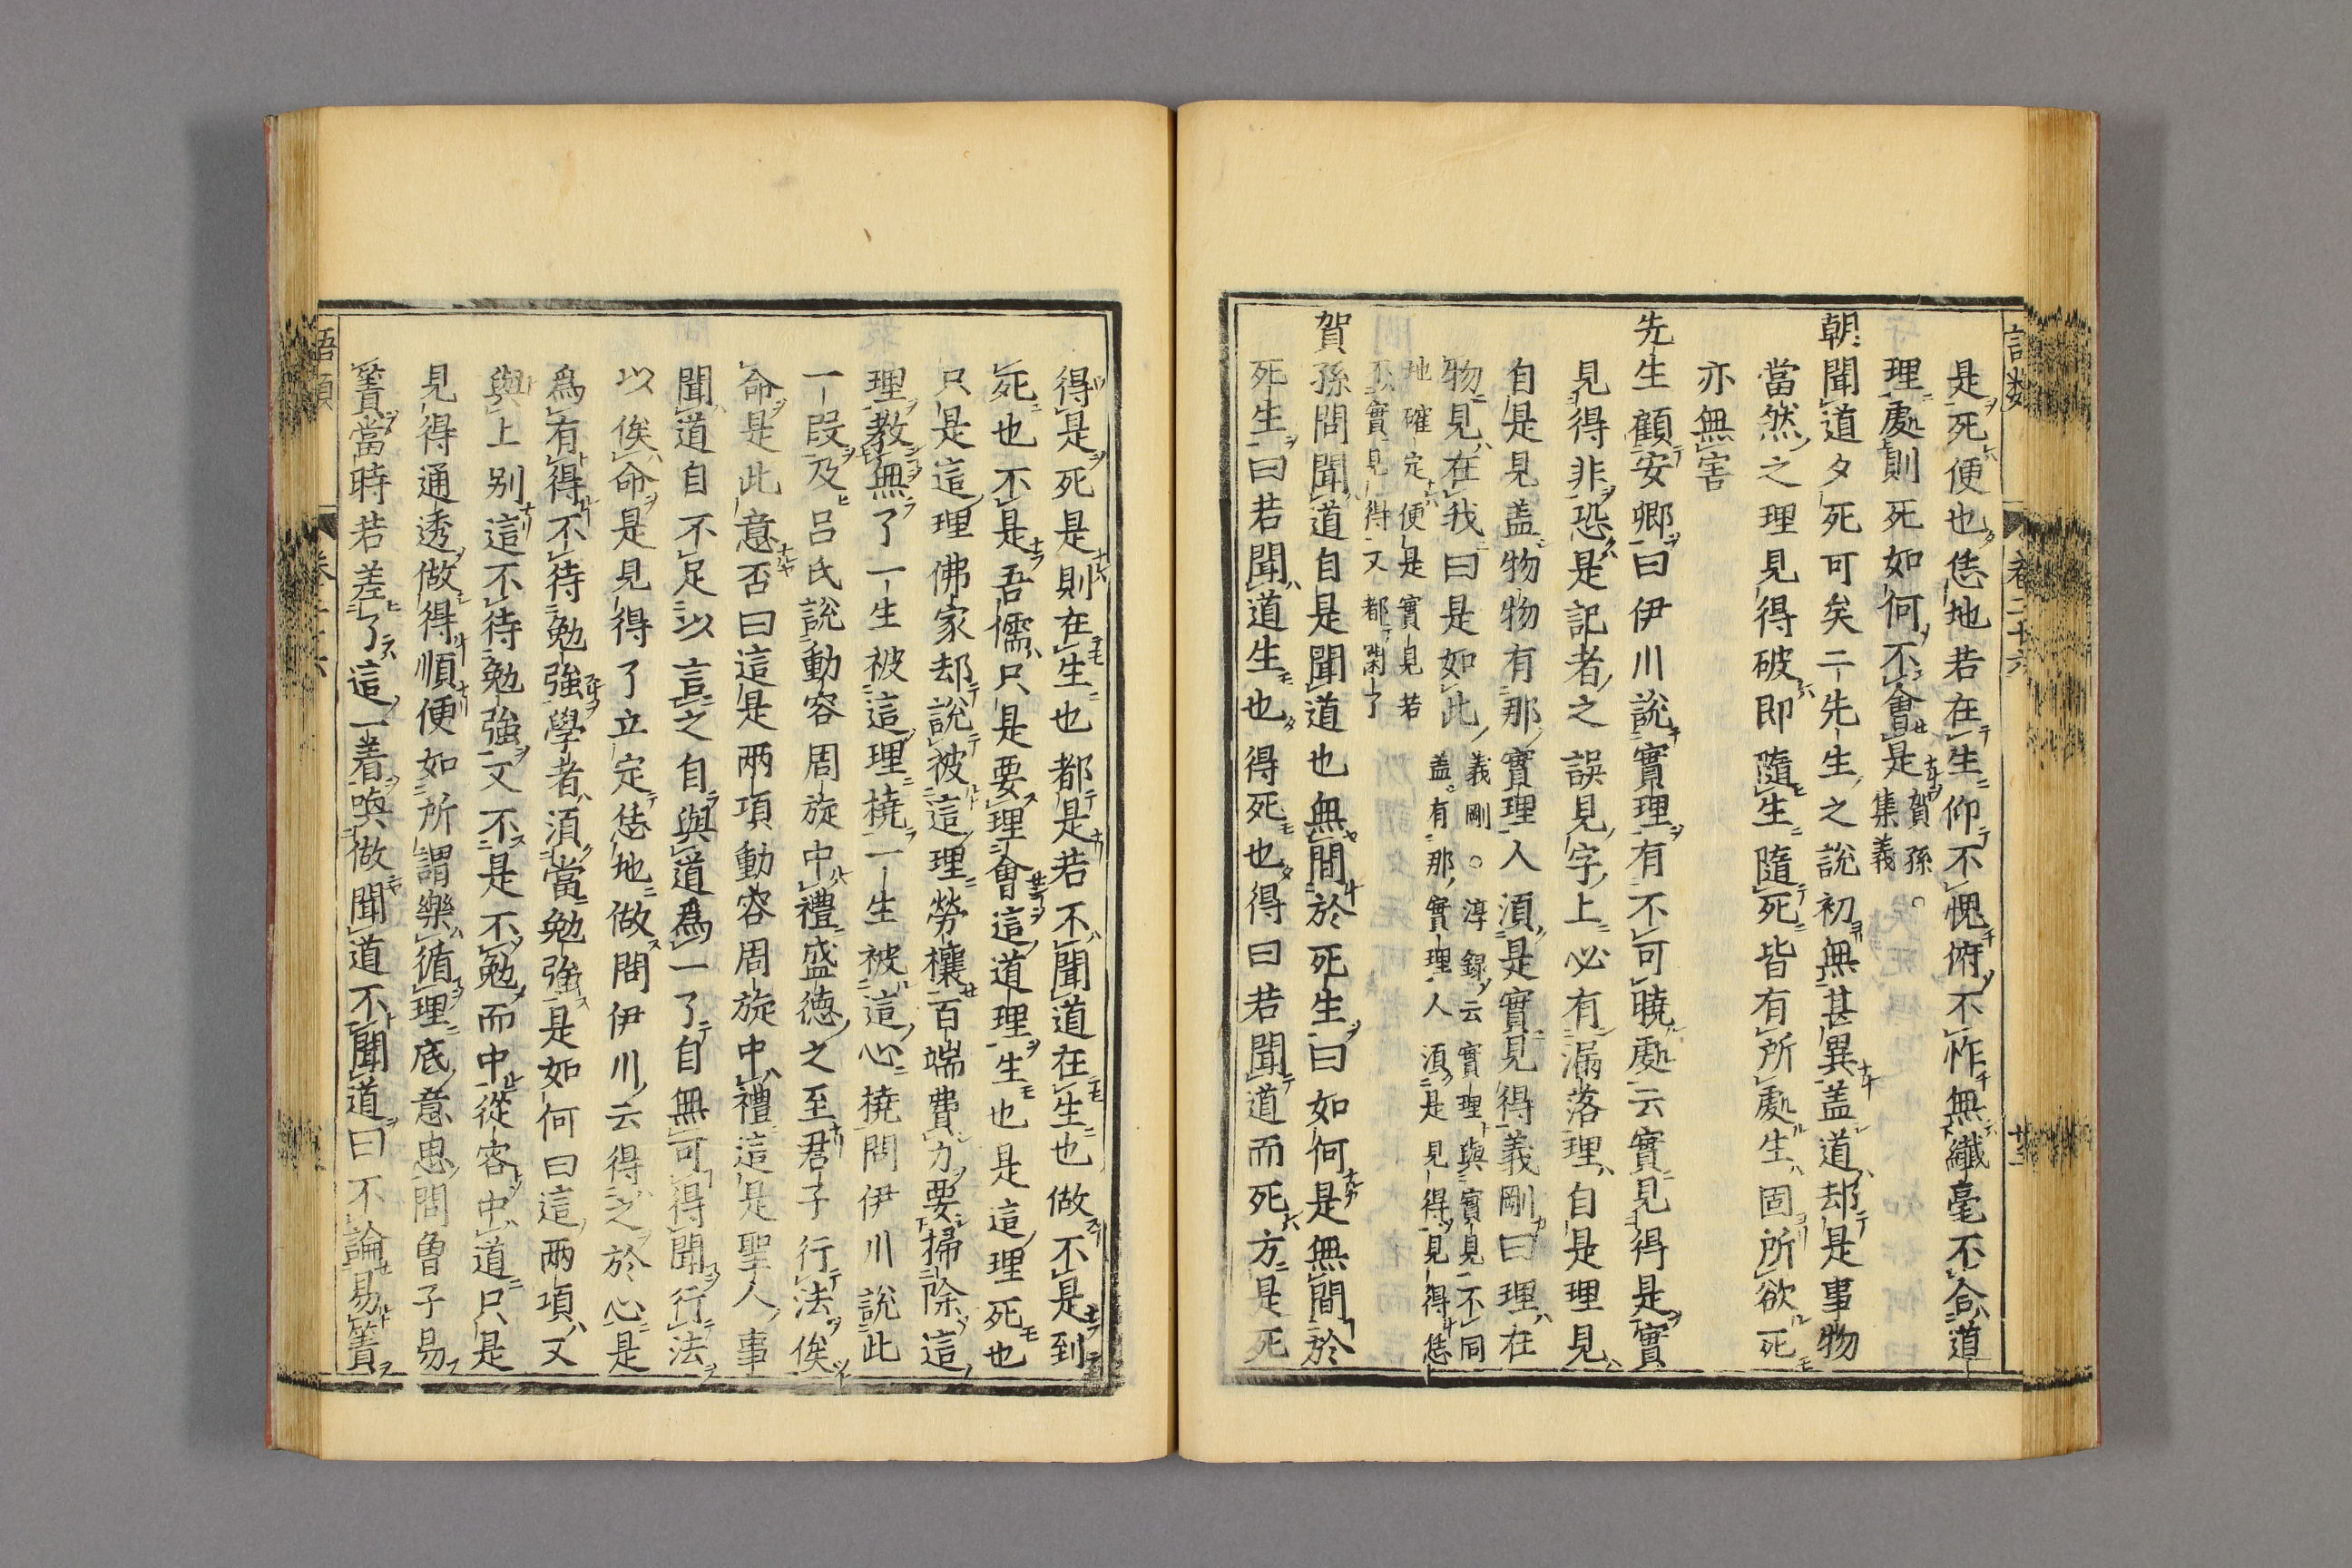 是死便也恁地若在生仰不愧俯不怍無纖毫不合道
理處則死如何不會是賀孫○集義
朝聞道夕死可矣二先生之說初無甚異蓋道却是事物
當然之理見得破即隨生隨死皆有所處生固所欲死
亦無害
先生顧安卿曰伊川說實理有不可曉處云實見得是實
見得非恐是記者之誤見字上必有漏落理自是理見
自是見盖物物有那實理人須是實見得義剛曰理在
物見在我曰是如此義剛○淳録云實理與實見不同
盖有那實理人須是見得見得恁
地確定便是實見若
不實見得又都閑了
賀孫問聞道自是聞道也無間於死生曰如何是無間於
死生曰若聞道生也得死也得曰若聞道而死方是死
得是死是則在生也都是若不聞道在生也做不是到
死也不是吾儒只是要理會這道理生也是這理死也
只是這理佛家却說被這理勞攘百端費力要掃除這
理教無了一生被這理撓一生被這心撓問伊川說此
一段及呂氏說動容周旋中禮盛德之至君子行法俟
命是此意否曰這是兩項動容周旋中禮這是聖人事
聞道自不足以言之自與道為一了自無可得聞行法
以俟命是見得了立定恁地做問伊川云得之於心是
為有得不待勉強學者須當勉強是如何曰這兩項又
與上別這不待勉強又不是不勉而中從容中道只是
見得通透做得順便如所謂樂循理底意思問曾子易
簀當時若差了這一着喚做聞道不聞道曰不論易簀
語類
卷二十六
廿三
語類
卷二十六